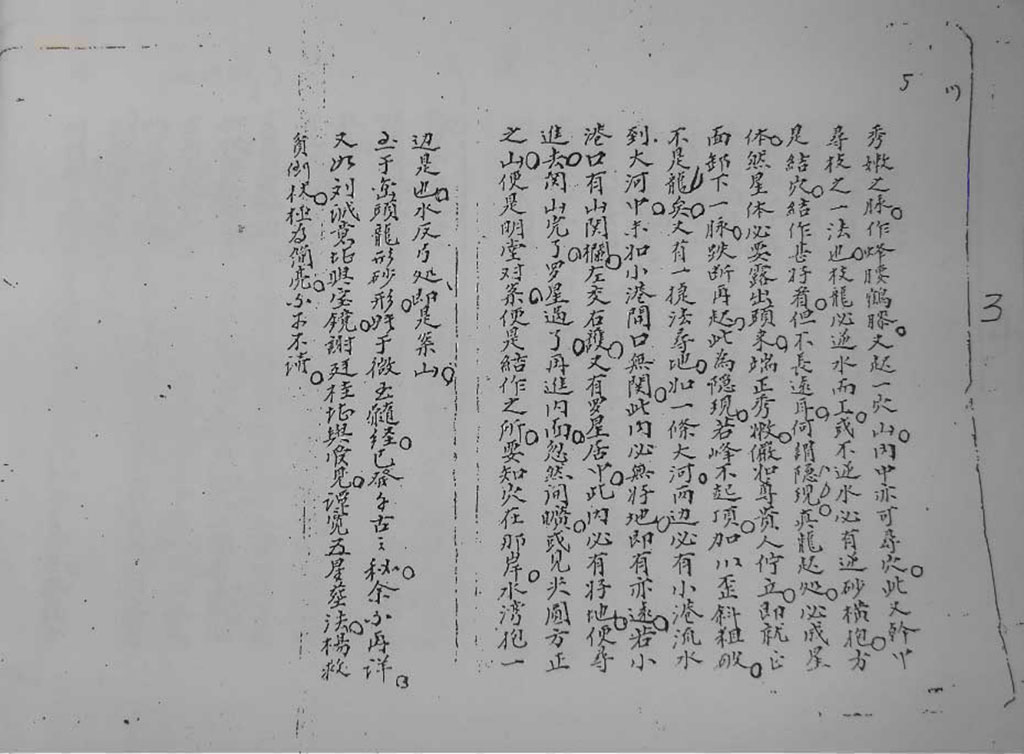 秀嫩之脉。作蜂腰鶴膝。又起一穴山。内中亦可尋穴。此又幹中
尋枝之一法也。枝龍必逆水而上。或不逆水必有逆砂橫抱。方
是結穴。結作甚好看。但不長遠耳。何謂隐現。真龍起処。必成星
体。然星体必要露出頭来。端正秀嫩。儼如尊贵人佇立。即就正
面卸下一脉。跌断再起。此為隐現。若峰不起頂。加以歪斜粗
不是龍矣。又有一捷法尋地。如一條大河。两边必有小港流水
到大河中。未如小港開口無関。此内必無好地。即有亦遠。若小
港口有山関攔。左交右護。又有罗星居中。此内必有好地。便尋
進去。関山完了。罗星過了。再進内面。忽然间曠。或见尖圓方正
之山。便是明堂对案。便是結作之所。要知穴在那岸。水湾抱一
边是也。水反弓処。即是案山。
至于巒頭龍形砂形。好于微。玉髓经。已發千古之秘。余不再详。
又如刘诚賁地與宝鏡。謝廷桂地與管见。谭宽五星葬法。楊救
貧倒杖。極为简。亦不
5
3